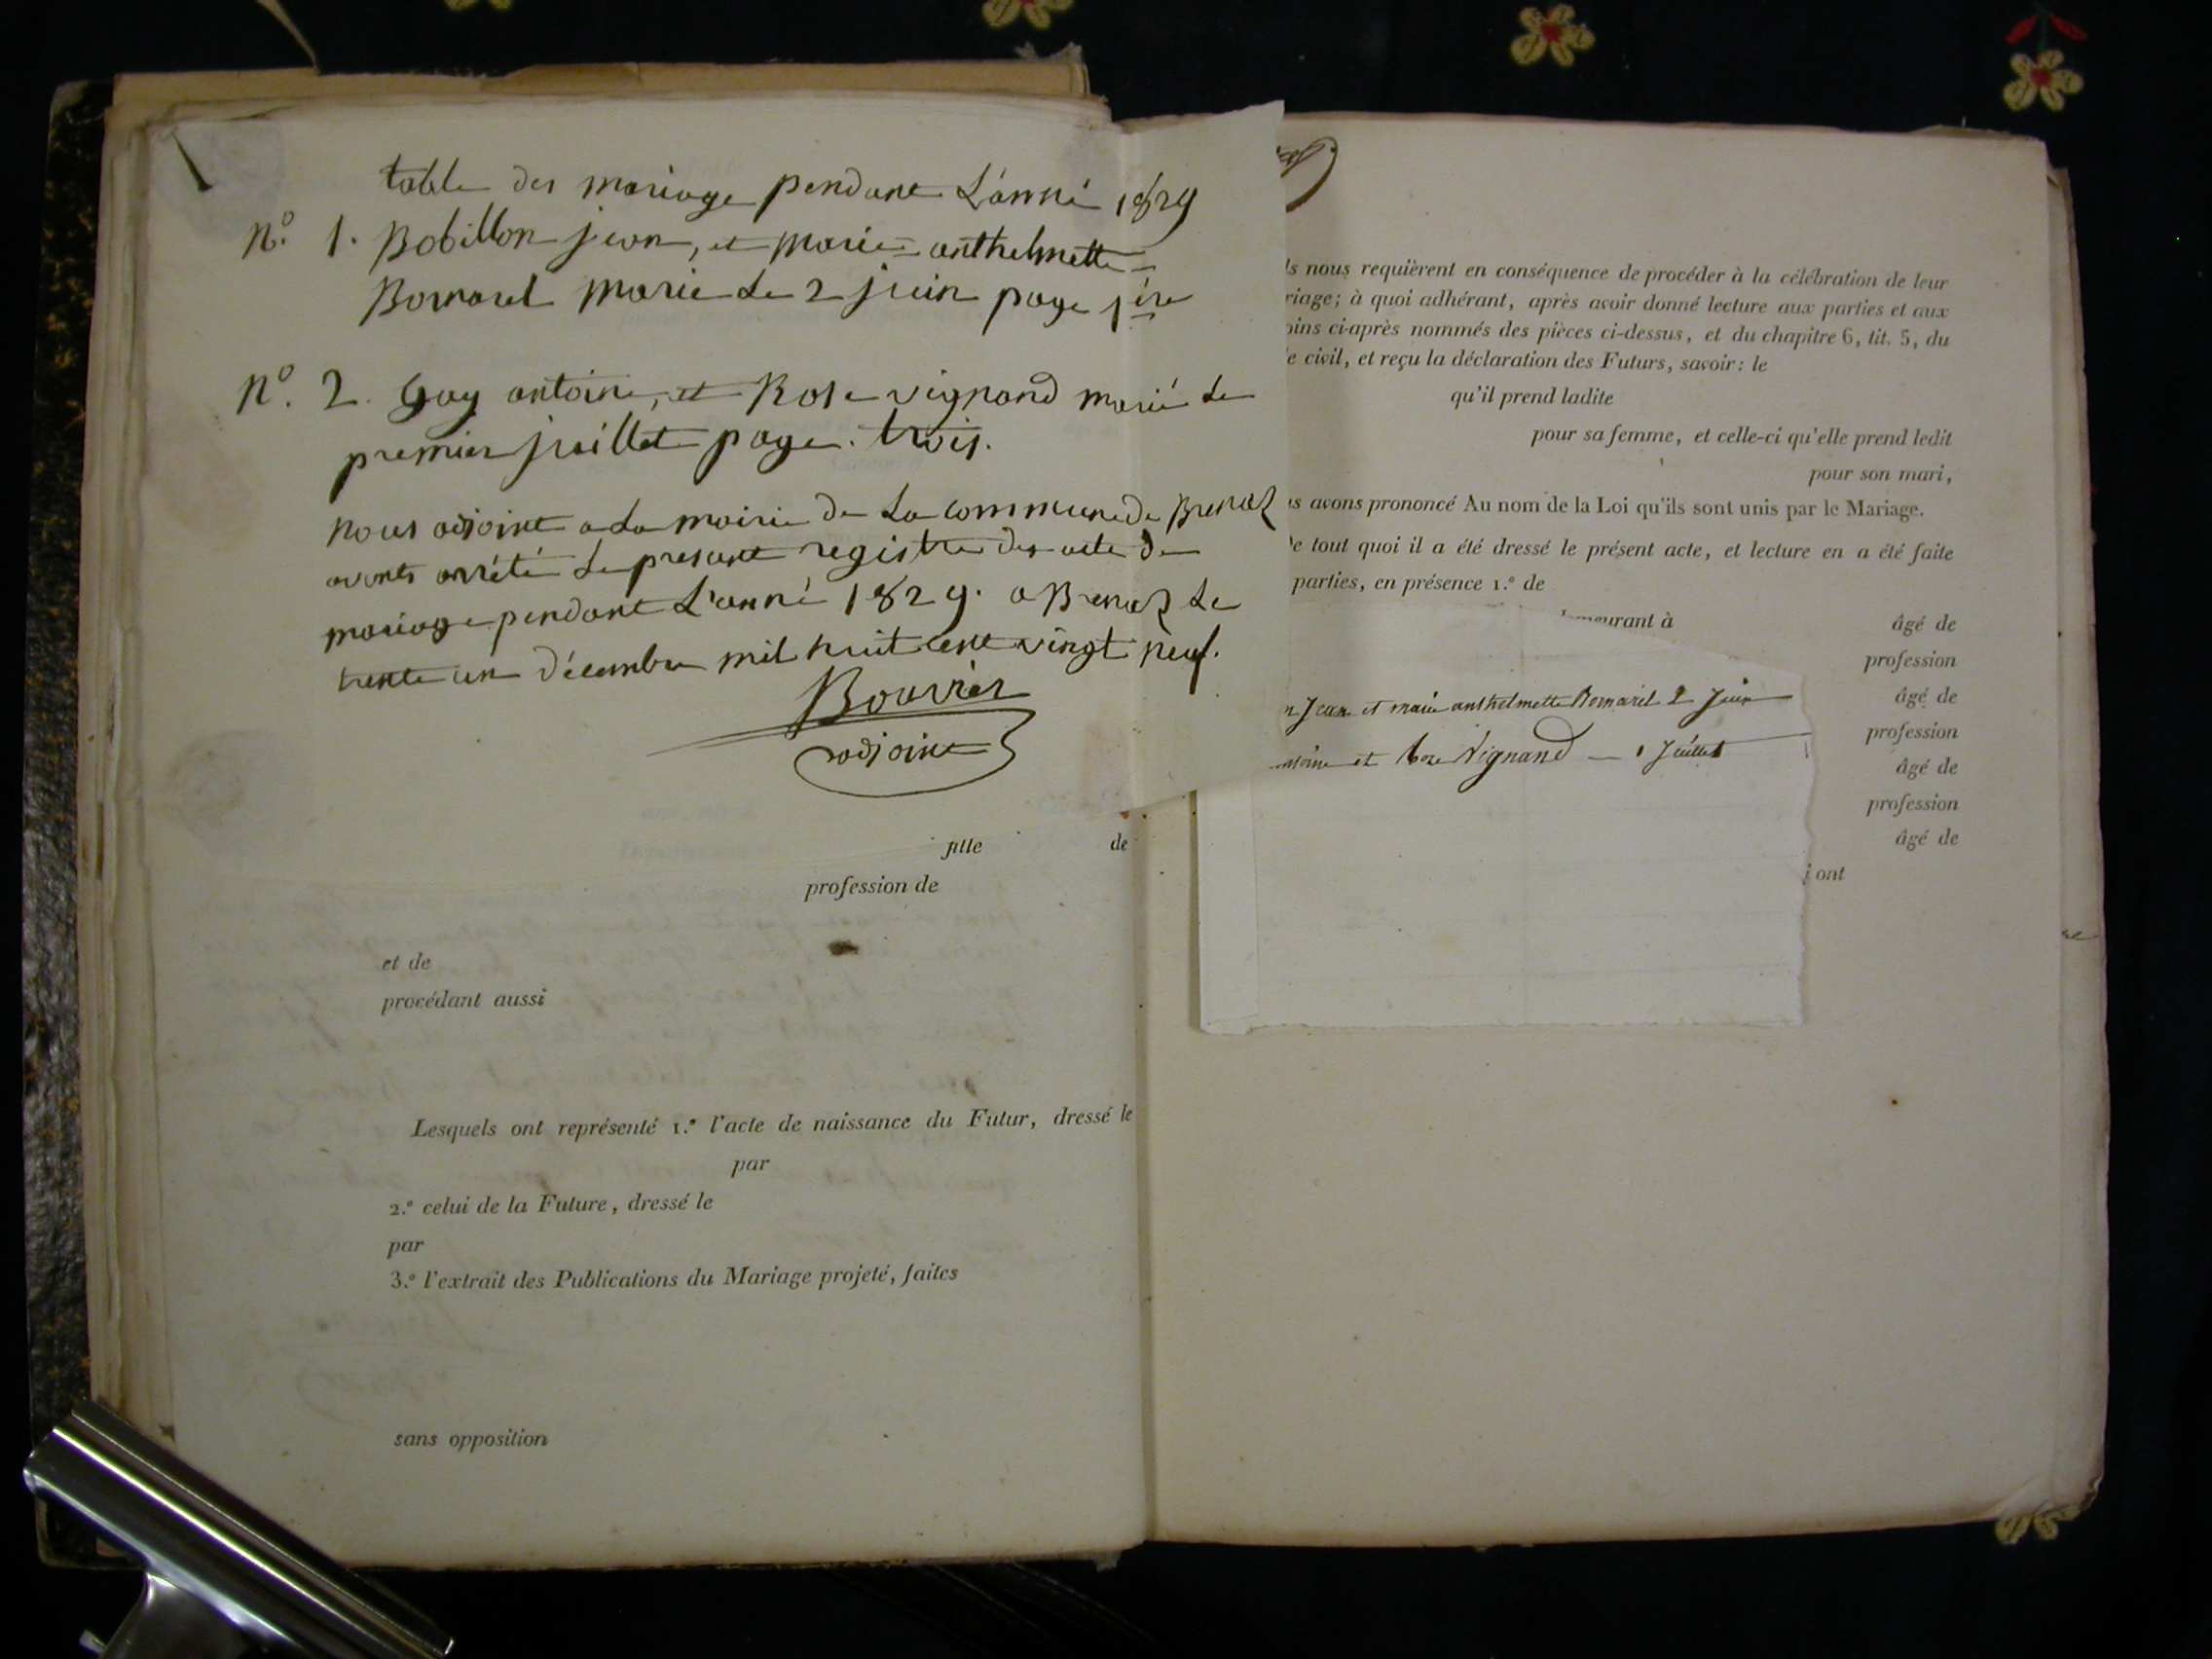 table des mariage pendant L'anné 1829
N.º 1. Bobillon jean, et marie = anthelmette =
Bornarel marié Le 2 juin page 1ère
N.º 2. Guy antoine, et Rose vignand marié Le
premier juillet page. trois.
Nous adjoint a La mairie de La commune de Brenaz
avons arrêté Le presant registre des acte de
mariage pendant L'anné 1829. a Brenaz Le
trente un décembre mil huit cent vingt neuf.
Bouvier
adjoint
fille de
profession de
et de
procédant aussi
Lesquels ont représenté 1.º l'acte de naissance du Futur, dressé le
par
2.º celui de la Future, dressé le
par
3.º l'extrait des Publications du Mariage projeté, faites
sans opposition
ls nous requièrent en conséquence de procéder à la célébration de leur
riage; à quoi adhérant, après avoir donné lecture aux parties et aux
oins ci-après nommés des pièces ci-dessus, et du chapitre 6, tit. 5, du
e civil, et reçu la déclaration des Futurs, savoir: le
qu'il prend ladite
pour sa femme, et celle-ci qu'elle prend ledit
pour son mari,
us avons prononcé Au nom de la Loi qu'ils sont unis par le Mariage.
De tout quoi il a été dressé le présent acte, et lecture en a été faite
parties, en présence 1.º de
meurant à âgé de
profession
n Jean et marie anthelmette Bornarel 2 Juin
âgé de
profession
antoine et Roze Vignand — 1 Juillet
âgé de
profession
âgé de
i ont